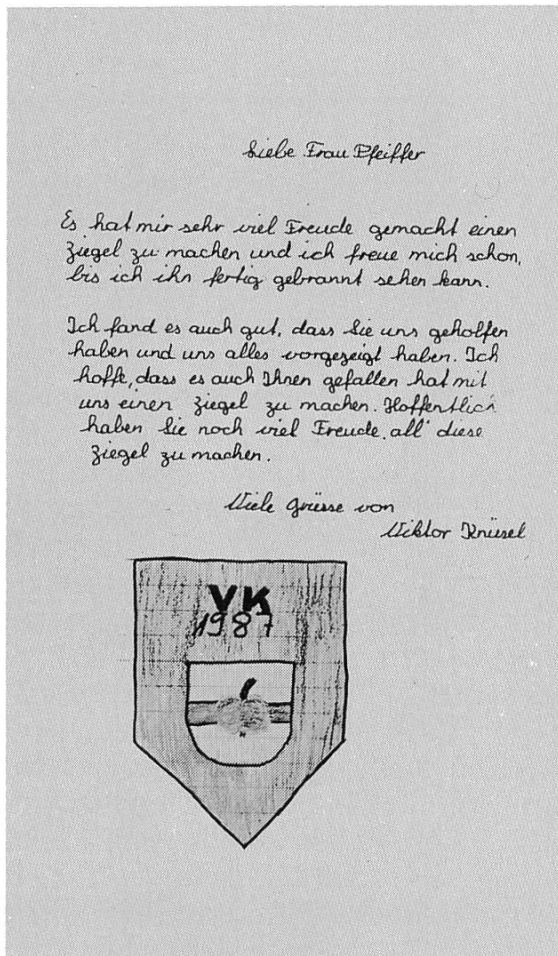 Liebe Frau Pfeiffer
Es hat mir sehr viel Freude gemacht einen
Ziegel zu machen und ich freue mich schon,
bis ich ihn fertig gebrannt sehen kann.
Ich fand es auch gut, dass Sie uns geholfen
haben und uns alles vorgezeigt haben. Ich
hoffe, dass es auch Ihnen gefallen hat mit
uns einen Ziegel zu machen. Hoffentlich
haben Sie noch viel Freude, all' diese
Ziegel zu machen.
Viele Grüsse von
Viktor Knüsel
VK
1987